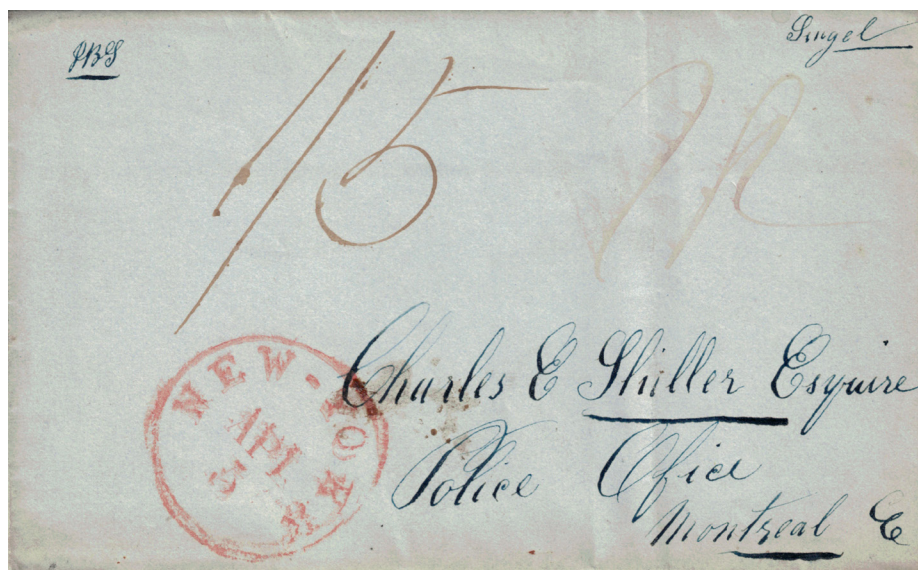 PBS
Singel
1/5
NEW-YORK
APL
3
Charles E Shiller Esquire
Police Ofice
Montreal CE